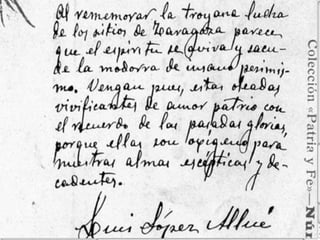 Al rememorar la troyana lucha
de los sitios de Zaragoza parece
que el espíritu se aviva y sacu-
de la modorra de insano pesimis-
mo. Vengan pues, estas oleadas
vivificantes de amor patrio con
el recuerdo de las pasadas glorias,
porque ellas son oxígeno para
nuestras almas escépticas y de-
cadentes.
Luis López Allué
Colección «Patria y Fe»—Núm